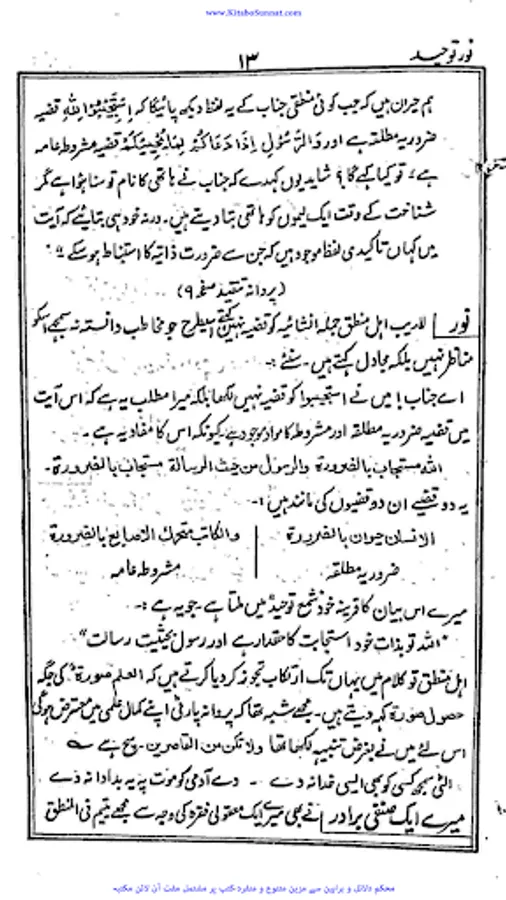 www.KitaboSunnat.com
نور توحید
۱۳
ہم حیران ہیں کہ جب کوئی منطقی جناب کے یہ لفظ دیکھ پائیگا کہ اِسْتَجِیْبُوْا لِلّٰہِ قضیہ
ضروریہ مطلقہ ہے اور وَالرَّسُوْلِ اِذَا دَعَاکُمْ لِمَا یُحْیِیْکُمْ قضیہ مشروطہ عامہ
ہے، تو کیا کہے گا؟ شاید یوں کہدے کہ جناب نے ہاتھی کا نام تو سنا ہوا ہے مگر
شناخت کے وقت ایک لیموں کو ہاتھی بتا دیتے ہیں۔ ورنہ خود ہی بتایئے کہ آیت
میں کہاں تاکیدی لفظ موجود ہیں کہ جن سے ضرورت ذاتیہ کا استنباط ہو سکے"
(پروانہ تنقید صفحہ ۹)
نور لاریب اہل منطق جملہ انشائیہ کو قضیہ نہیں کہتے اسیطرح جو مخاطب دانستہ نہ سمجھے اسکو
مناظر نہیں بلکہ مجادل کہتے ہیں۔ سنئے:۔
اے جناب! میں نے استجیبوا کو قضیہ نہیں لکھا بلکہ میرا مطلب یہ ہے کہ اس آیت
میں قضیہ ضروریہ مطلقہ اور مشروطہ کا مواد موجود ہے۔ کیونکہ اس کا مفاد یہ ہے۔
اللہ مستجاب بالضرورۃ والرسول من حیث الرسالۃ مستجاب بالضرورۃ۔
یہ دو قضیے ان دو قضیوں کی مانند ہیں:۔
الانسان حیوان بالضرورۃ | والکاتب متحرک الاصابع بالضرورۃ
ضروریہ مطلقہ | مشروطہ عامہ
میرے اس بیان کا قرینہ خود شمع توحید میں ملتا ہے۔ جو یہ ہے:۔
"اللہ تو بذات خود استجابت کا حقدار ہے اور رسول بحیثیت رسالت"
اہل منطق تو کلام میں یہاں تک ارتکاب تجوز کر دیا کرتے ہیں کہ العلم صورۃ کی جگہ
حصول صورۃ کہہ دیتے ہیں۔ مجھے شبہ تھا کہ پروانہ پارٹی اپنے کمال علمی میں معترض ہوگی
اس لئے میں نے بغرض تنبیہ لکھا تھا ولا تکن من القاصرین۔ سچ ہے ؎
الٹی سمجھ کسی کو بھی ایسی خدا نہ دے ۔ دے آدمی کو موت پہ یہ بد ادا نہ دے
میرے ایک حنفی برادر نے بھی میرے ایک معقولی فقرہ کی وجہ سے مجھے یتیم فی المنطق
محکم دلائل و براہین سے مزین متنوع و منفرد کتب پر مشتمل مفت آن لائن مکتبہ